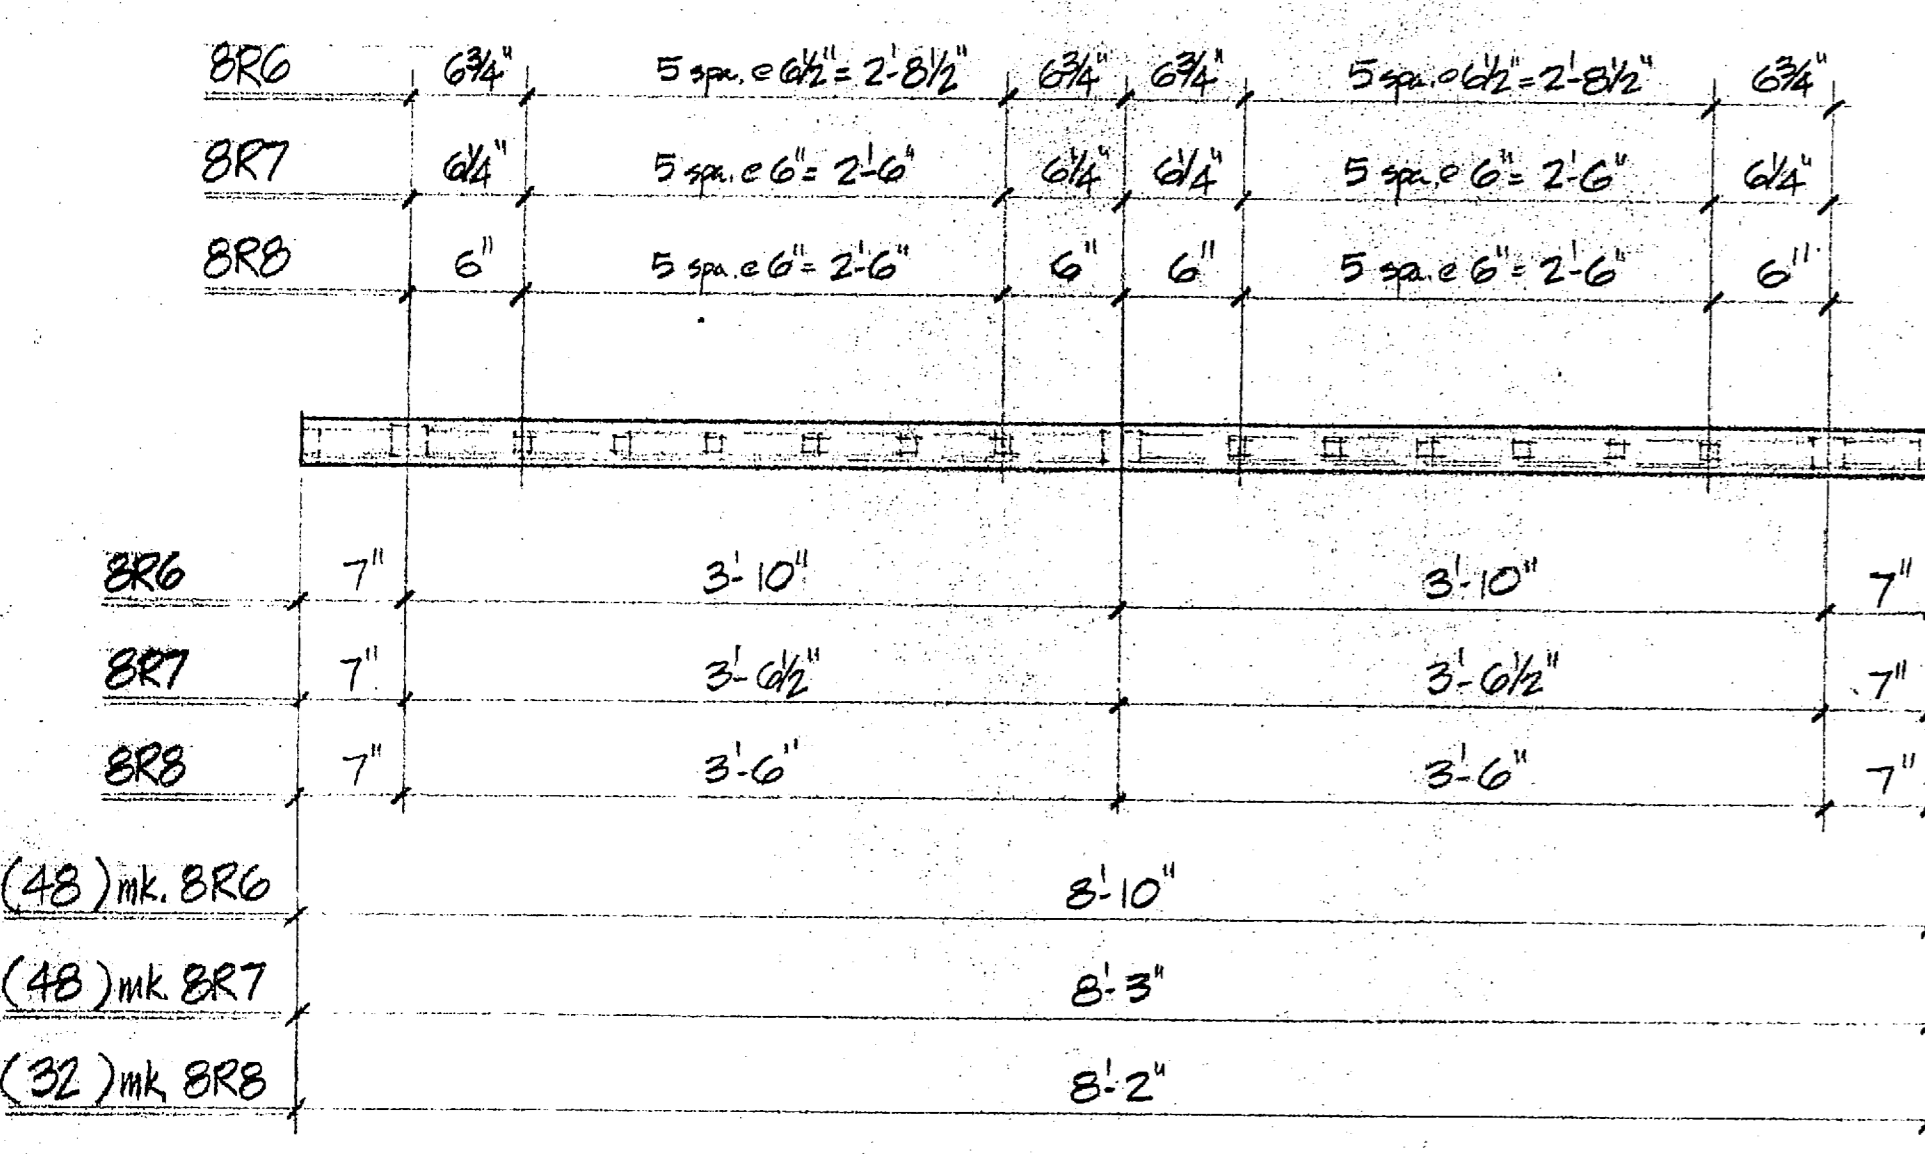 8R6 6 3/4" 5 spa. @ 6 1/2" = 2'-8 1/2" 6 3/4" 6 3/4" 5 spa. @ 6 1/2" = 2'-8 1/2" 6 3/4"
8R7 6 1/4" 5 spa. @ 6" = 2'-6" 6 1/4" 6 1/4" 5 spa. @ 6" = 2'-6" 6 1/4"
8R8 6" 5 spa. @ 6" = 2'-6" 6" 6" 5 spa. @ 6" = 2'-6" 6"
8R6 7" 3'-10" 3'-10" 7"
8R7 7" 3'-6 1/2" 3'-6 1/2" 7"
8R8 7" 3'-6" 3'-6" 7"
(48) mk. 8R6 8'-10"
(48) mk. 8R7 8'-3"
(32) mk. 8R8 8'-2"